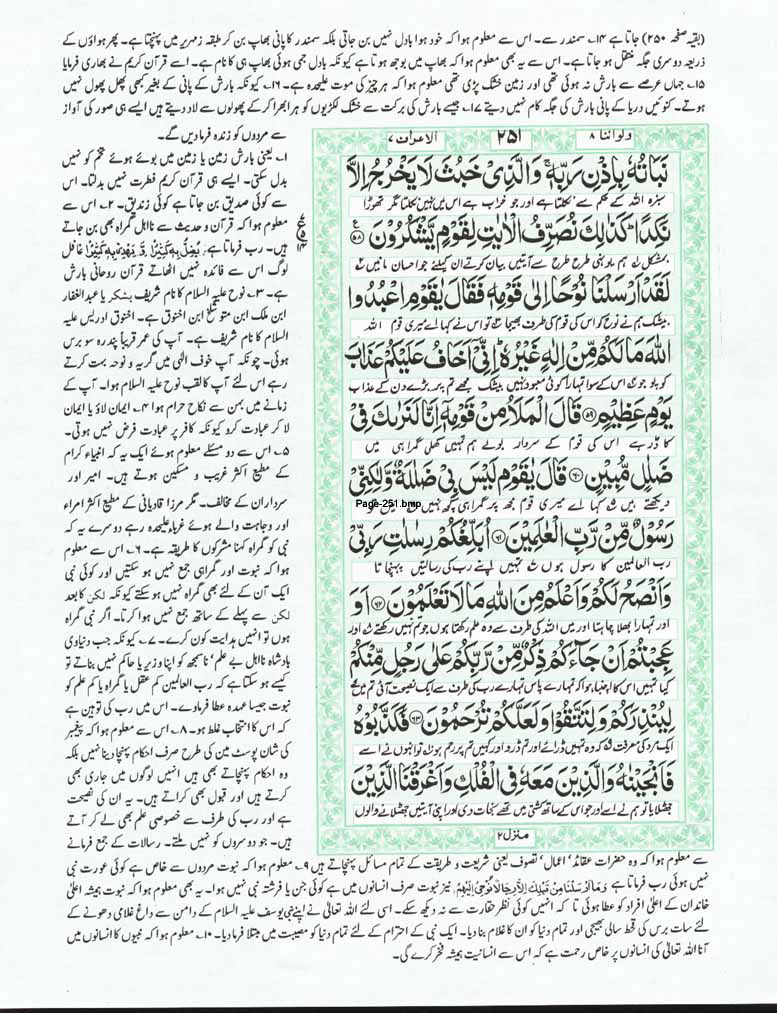 (بقیہ صفحہ ۲۵۰) جاتا ہے ۱۴؎ سمندر سے۔ اس سے معلوم ہوا کہ خود ہوا بادل نہیں بن جاتی بلکہ سمندر کا پانی بھاپ بن کر طبقہ زمہریر میں پہنچتا ہے۔ پھر ہواؤں کے
ذریعہ دوسری جگہ منتقل ہو جاتا ہے۔ اس سے یہ بھی معلوم ہوا کہ بھاپ میں بوجھ ہوتا ہے کیونکہ بادل جمی ہوئی بھاپ ہی کا نام ہے۔ اسے قرآن کریم نے بھاری فرمایا
۱۵؎ جہاں عرصے سے بارش نہ ہوئی تھی اور زمین خشک پڑی تھی معلوم ہوا کہ ہر چیز کی موت علیحدہ ہے۔ ۱۶؎ کیونکہ بارش کے پانی کے بغیر کبھی پھل پھول نہیں
ہوتے۔ کنوئیں دریا کے پانی بارش کی جگہ کام نہیں دیتے ۱۷؎ جیسے بارش کی برکت سے خشک لکڑیوں کو ہرا بھرا کر کے پھولوں سے لاد دیتے ہیں ایسے ہی صور کی آواز
سے مردوں کو زندہ فرما دیں گے۔
ولواننا ۸
۲۵۱
الاعراف ۷
نَبَاتُهٗ بِاِذْنِ رَبِّهٖ ۚ وَالَّذِیْ خَبُثَ لَا یَخْرُجُ اِلَّا
سبزہ اللہ کے حکم سے نکلتا ہے اور جو خراب ہے اس میں نہیں نکلتا مگر تھوڑا
نَكِدًا ؕ كَذٰلِكَ نُصَرِّفُ الْاٰیٰتِ لِقَوْمٍ یَّشْكُرُوْنَ ۝۵۸
بمشکل ہم یونہی طرح طرح سے آیتیں بیان کرتے ہیں ان کیلئے جو احسان مانیں
لَقَدْ اَرْسَلْنَا نُوْحًا اِلٰی قَوْمِهٖ فَقَالَ یٰقَوْمِ اعْبُدُوا
بیشک ہم نے نوح کو اس کی قوم کی طرف بھیجا تو اس نے کہا اے میری قوم اللہ
اللّٰهَ مَا لَكُمْ مِّنْ اِلٰهٍ غَیْرُهٗ ؕ اِنِّیْۤ اَخَافُ عَلَیْكُمْ عَذَابَ
کو پوجو اس کے سوا تمہارا کوئی معبود نہیں بیشک مجھے تم پر بڑے دن کے عذاب
یَوْمٍ عَظِیْمٍ ۝۵۹ قَالَ الْمَلَاُ مِنْ قَوْمِهٖۤ اِنَّا لَنَرٰىكَ فِیْ
کا ڈر ہے اس کی قوم کے سردار بولے ہم تمہیں کھلی گمراہی میں
ضَلٰلٍ مُّبِیْنٍ ۝۶۰ قَالَ یٰقَوْمِ لَیْسَ بِیْ ضَلٰلَةٌ وَّلٰكِنِّیْ
دیکھتے ہیں کہا اے میری قوم مجھ میں گمراہی کچھ نہیں میں تو
Page-251.bmp
رَسُوْلٌ مِّنْ رَّبِّ الْعٰلَمِیْنَ ۝۶۱ اُبَلِّغُكُمْ رِسٰلٰتِ رَبِّیْ
رب العالمین کا رسول ہوں تمہیں اپنے رب کی رسالتیں پہنچاتا
وَاَنْصَحُ لَكُمْ وَاَعْلَمُ مِنَ اللّٰهِ مَا لَا تَعْلَمُوْنَ ۝۶۲ اَوَ
اور تمہارا بھلا چاہتا اور میں اللہ کی طرف سے وہ علم رکھتا ہوں جو تم نہیں رکھتے اور
عَجِبْتُمْ اَنْ جَآءَكُمْ ذِكْرٌ مِّنْ رَّبِّكُمْ عَلٰی رَجُلٍ مِّنْكُمْ
کیا تمہیں اس کا اچنبا ہوا کہ تمہارے پاس تمہارے رب کی طرف سے ایک نصیحت آئی تم میں کے
لِیُنْذِرَكُمْ وَلِتَتَّقُوْا وَلَعَلَّكُمْ تُرْحَمُوْنَ ۝۶۳ فَكَذَّبُوْهُ
ایک مرد کی معرفت کہ وہ تمہیں ڈرائے اور تم ڈرو اور کہیں تم پر رحم ہو تو انہوں نے اسے
فَاَنْجَیْنٰهُ وَالَّذِیْنَ مَعَهٗ فِی الْفُلْكِ وَاَغْرَقْنَا الَّذِیْنَ
جھٹلایا تو ہم نے اسے اور جو اس کے ساتھ کشتی میں تھے نجات دی اور اپنی آیتیں جھٹلانے والوں
منزل ۲
ع
۱۴
۱؎ یعنی بارش زمین یا زمین میں بوئے ہوئے تخم کو نہیں
بدل سکتی۔ ایسے ہی قرآن کریم فطرت نہیں بدلتا۔ اس
سے کوئی صدیق بن جاتا ہے کوئی زندیق۔ ۲؎ اس سے
معلوم ہوا کہ قرآن و حدیث سے نااہل گمراہ بھی بن جاتے
ہیں۔ رب فرماتا ہے یُضِلُّ بِهٖ كَثِیْرًا وَّ یَهْدِیْ بِهٖ كَثِیْرًا غافل
لوگ اس سے فائدہ نہیں اٹھاتے قرآن روحانی بارش
ہے۔ ۳؎ نوح علیہ السلام کا نام شریف یشکر یا عبدالغفار
ابن ملک ابن متوشلخ ابن اخنوق ہے۔ اخنوق ادریس علیہ
السلام کا نام شریف ہے۔ آپ کی عمر قریباً پندرہ سو برس
ہوئی۔ چونکہ آپ خوف الٰہی میں گریہ و نوحہ بہت کرتے
رہے اس لئے آپ کا لقب نوح علیہ السلام ہوا۔ آپ کے
زمانے میں بہن سے نکاح حرام ہوا ۴؎ ایمان لاؤ یا ایمان
لا کر عبادت کرو کیونکہ کافر پر عبادت فرض نہیں ہوتی۔
۵؎ اس سے دو مسئلے معلوم ہوئے ایک یہ کہ انبیاء کرام
کے مطیع اکثر غریب و مسکین ہوتے ہیں۔ امیر اور
سرداران کے مخالف۔ مگر مرزا قادیانی کے مطیع اکثر امراء
اور وجاہت والے ہوئے غرباء علیحدہ رہے دوسرے یہ کہ
نبی کو گمراہ کہنا مشرکوں کا طریقہ ہے۔ ۶؎ اس سے معلوم
ہوا کہ نبوت اور گمراہی جمع نہیں ہو سکتیں اور کوئی نبی
ایک آن کے لئے بھی گمراہ نہیں ہو سکتے کیونکہ لکن کا بعد
لکن سے پہلے کے ساتھ جمع نہیں ہوا کرتا۔ اگر نبی گمراہ
ہوں تو انہیں ہدایت کون کرے۔ ۷؎ کیونکہ جب دنیاوی
بادشاہ نااہل بے علم' ناسمجھ کو اپنا وزیر یا حاکم نہیں بناتے تو
کیسے ہو سکتا ہے کہ رب العالمین کم عقل یا گمراہ یا کم علم کو
نبوت جیسا عہدہ عطا فرماوے۔ اس میں رب کی توہین ہے
کہ اس کا انتخاب غلط ہو۔ ۸؎ اس سے معلوم ہوا کہ پیغمبر
کی شان پوسٹ مین کی طرح صرف احکام پہنچا دینا نہیں بلکہ
وہ احکام پہنچاتے بھی ہیں انہیں لوگوں میں جاری بھی
کرتے ہیں اور قبول بھی کراتے ہیں۔ یہ ان کی نصیحت
ہے اور رب کی طرف سے خصوصی علم بھی لے کر آتے
ہیں۔ جو دوسروں کو نہیں ملتے۔ رسالات کے جمع فرمانے
سے معلوم ہوا کہ وہ حضرات عقائد' اعمال' تصوف یعنی شریعت و طریقت کے تمام مسائل پہنچاتے ہیں ۹؎ معلوم ہوا کہ نبوت مردوں سے خاص ہے کوئی عورت نبی
نہیں ہوئی رب فرماتا ہے وَمَاۤ اَرْسَلْنَا مِنْ قَبْلِكَ اِلَّا رِجَالًا نُّوْحِیْۤ اِلَیْهِمْ نیز نبوت صرف انسانوں میں ہے کوئی جن یا فرشتہ نبی نہیں ہوا۔ یہ بھی معلوم ہوا کہ نبوت ہمیشہ اعلیٰ
خاندان کے اعلیٰ افراد کو عطا ہوئی تا کہ انہیں کوئی نظر حقارت سے نہ دیکھ سکے۔ اسی لئے اللہ تعالیٰ نے اپنے نبی یوسف علیہ السلام کے دامن سے داغ غلامی دھونے کے
لئے سات برس کی قحط سالی بھیجی اور تمام دنیا کو ان کا غلام بنا دیا۔ ایک نبی کے احترام کے لئے تمام دنیا کو مصیبت میں مبتلا فرما دیا۔ ۱۰؎ معلوم ہوا کہ نبیوں کا انسانوں میں
آنا اللہ تعالیٰ کی انسانوں پر خاص رحمت ہے کہ اس سے انسانیت ہمیشہ فخر کرے گی۔